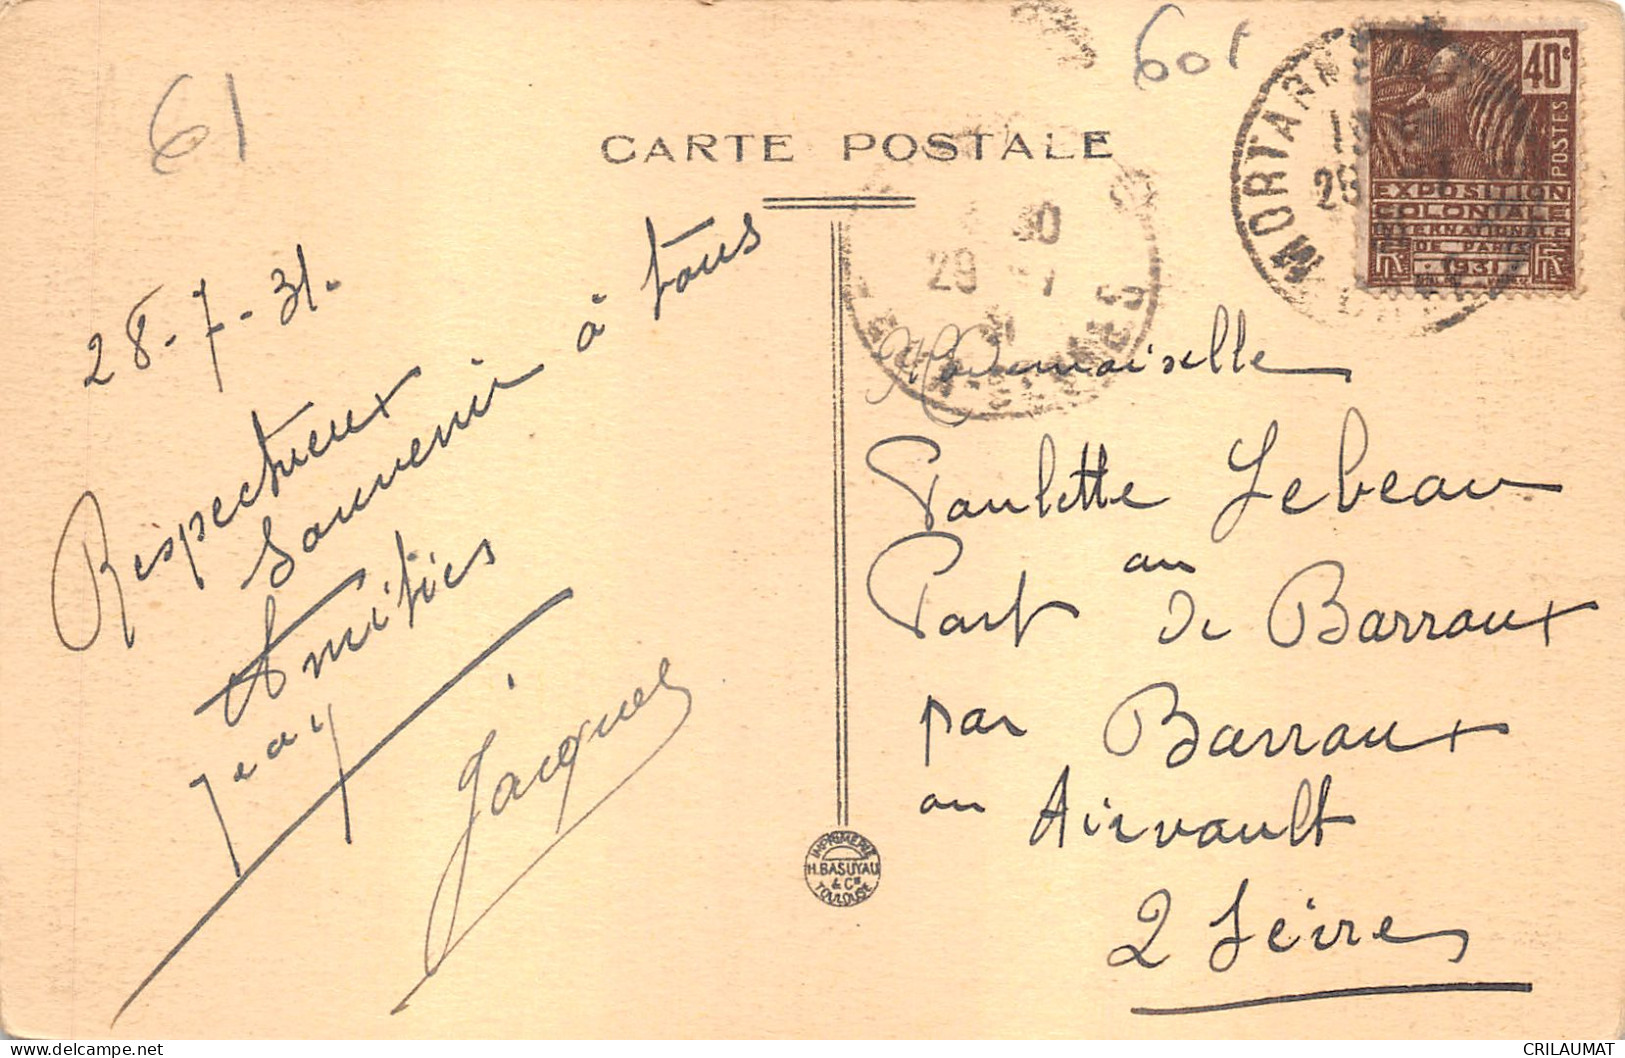 61
60f
CARTE POSTALE
40c
POSTES
EXPOSITION
COLONIALE
INTERNATIONALE
DE PARIS
RF 1931 RF
MORTAGNE
29 7
28-7-31.
Respectueux
Souvenir à tous
Amitiés
Jacques
Mademoiselle
Paulette Lebeau
au
Port de Barroux
par Barroux
au Airvault
2 Sèvres
IMPRIMERIE
H. BASUYAU
& Cie
TOULOUSE
CRILAUMAT